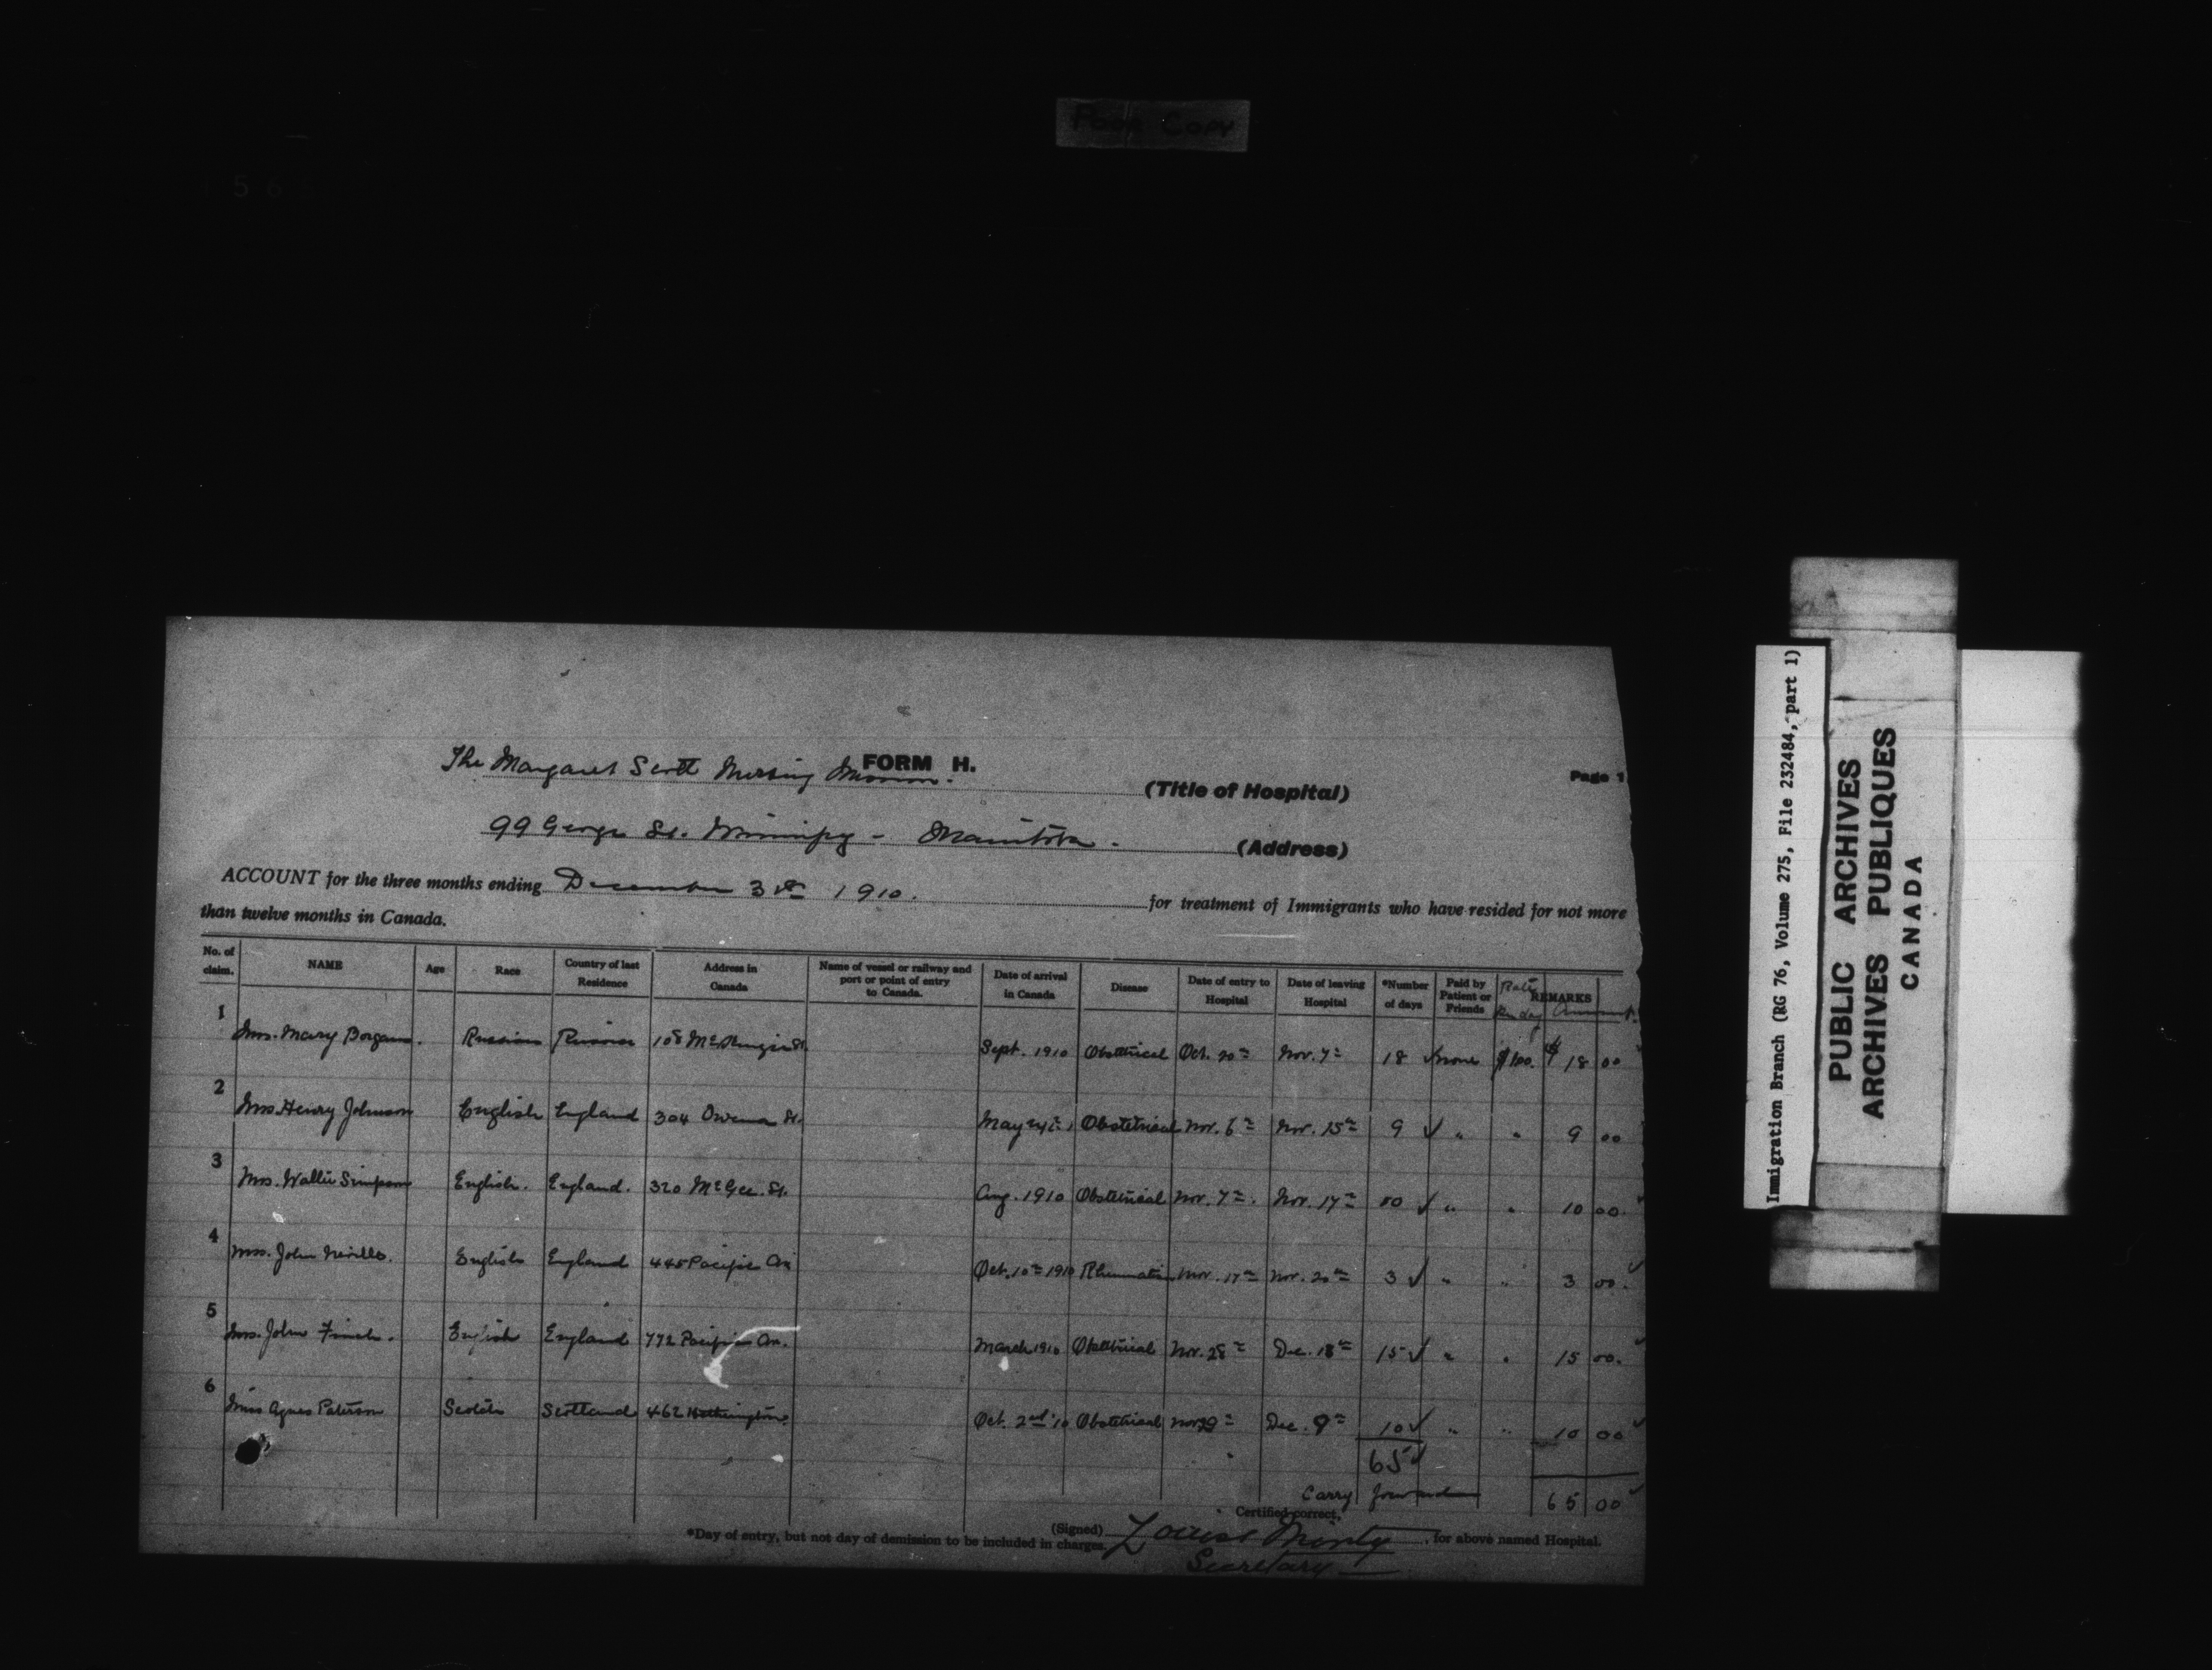 Poor Copy
FORM H.
The Margaret Scott Nursing Mission. (Title of Hospital)
Page 1
99 George St. Winnipeg - Manitoba. (Address)
ACCOUNT for the three months ending December 31st 1910. for treatment of Immigrants who have resided for not more
than twelve months in Canada.
No. of claim. NAME Age Race Country of last Residence Address in Canada Name of vessel or railway and port or point of entry to Canada. Date of arrival in Canada Disease Date of entry to Hospital Date of leaving Hospital *Number of days Paid by Patient or Friends Rate per day REMARKS Amount.
1 Mrs. Mary Russian Russia 108 Sept. 1910 Obstetrical Oct. 20th Nov. 7th 18 ✓ none $1.00. $ 18 00
2 Mrs. Henry Johnson English England 304 Owena St. May Obstetrical Nov. 6th Nov. 15th 9 ✓ " " 9 00
3 Mrs. Walter Simpson English. England. 320 McGee. St. Aug. 1910 Obstetrical Nov. 7th. Nov. 17th 10 ✓ " " 10 00.
4 Mrs. John Neville. English England 445 Pacific Av Oct. 10th 1910 Rheumatism Nov. 17th Nov. 20th 3 ✓ " " 3 00.
5 Mrs. John Finch. English England 772 Pacific Av. March 1910 Obstetrical Nov. 28th Dec. 15 ✓ " " 15 00.
6 Miss Agnes Paterson Scotch Scotland 462 Oct. 2nd '10 Obstetrical Nov 29th Dec. 9th 10 ✓ " " 10 00
65 ✓
Carry forward 65 00
Certified correct,
(Signed) Louise Minty for above named Hospital.
*Day of entry, but not day of demission to be included in charges.
Secretary
Immigration Branch (RG 76, Volume 275, File 232484, part 1)
PUBLIC ARCHIVES
ARCHIVES PUBLIQUES
CANADA